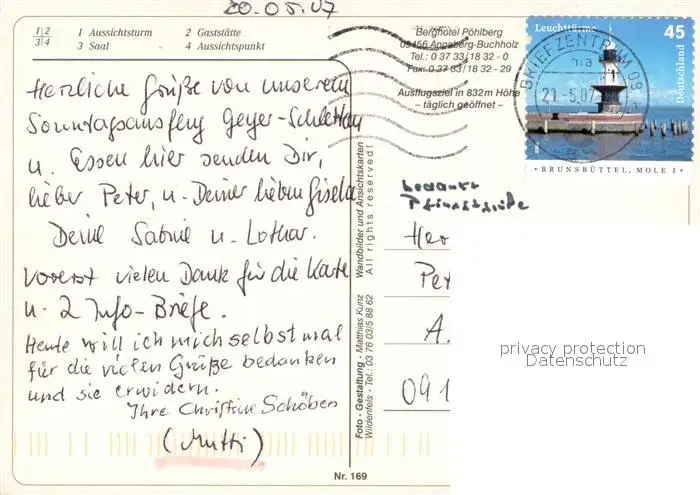 20.05.07
1 2
3 4
1 Aussichtsturm 2 Gaststätte
3 Saal 4 Aussichtspunkt
Berghotel Pöhlberg
09456 Annaberg-Buchholz
Tel.: 0 37 33/18 32 - 0
Fax: 0 37 33/18 32 - 29
Ausflugsziel in 832m Höhe
– täglich geöffnet –
Leuchttürme 45
Deutschland
BRIEFZENTRUM 09
21.-5.07
BRUNSBÜTTEL, MOLE 1
Herzliche Grüße von unserem
Sonntagsausflug Geyer-Schlettau
u. Essen hier senden Dir,
lieber Peter, u. Deiner lieben Gisela
Deine Sabine u. Lothar.
Vorerst vielen Dank für die Karte
u. 2 Info-Briefe.
Heute will ich mich selbst mal
für die vielen Grüße bedanken
und sie erwidern.
Ihre Christine Schöben
(Mutti)
Foto - Gestaltung - Matthias Kunz Wandbilder und Ansichtskarten
Wildenfels - Tel.: 03 76 03/5 88 62 All rights reserved!
Her
Pet
A.
091
privacy protection
Datenschutz
Nr. 169